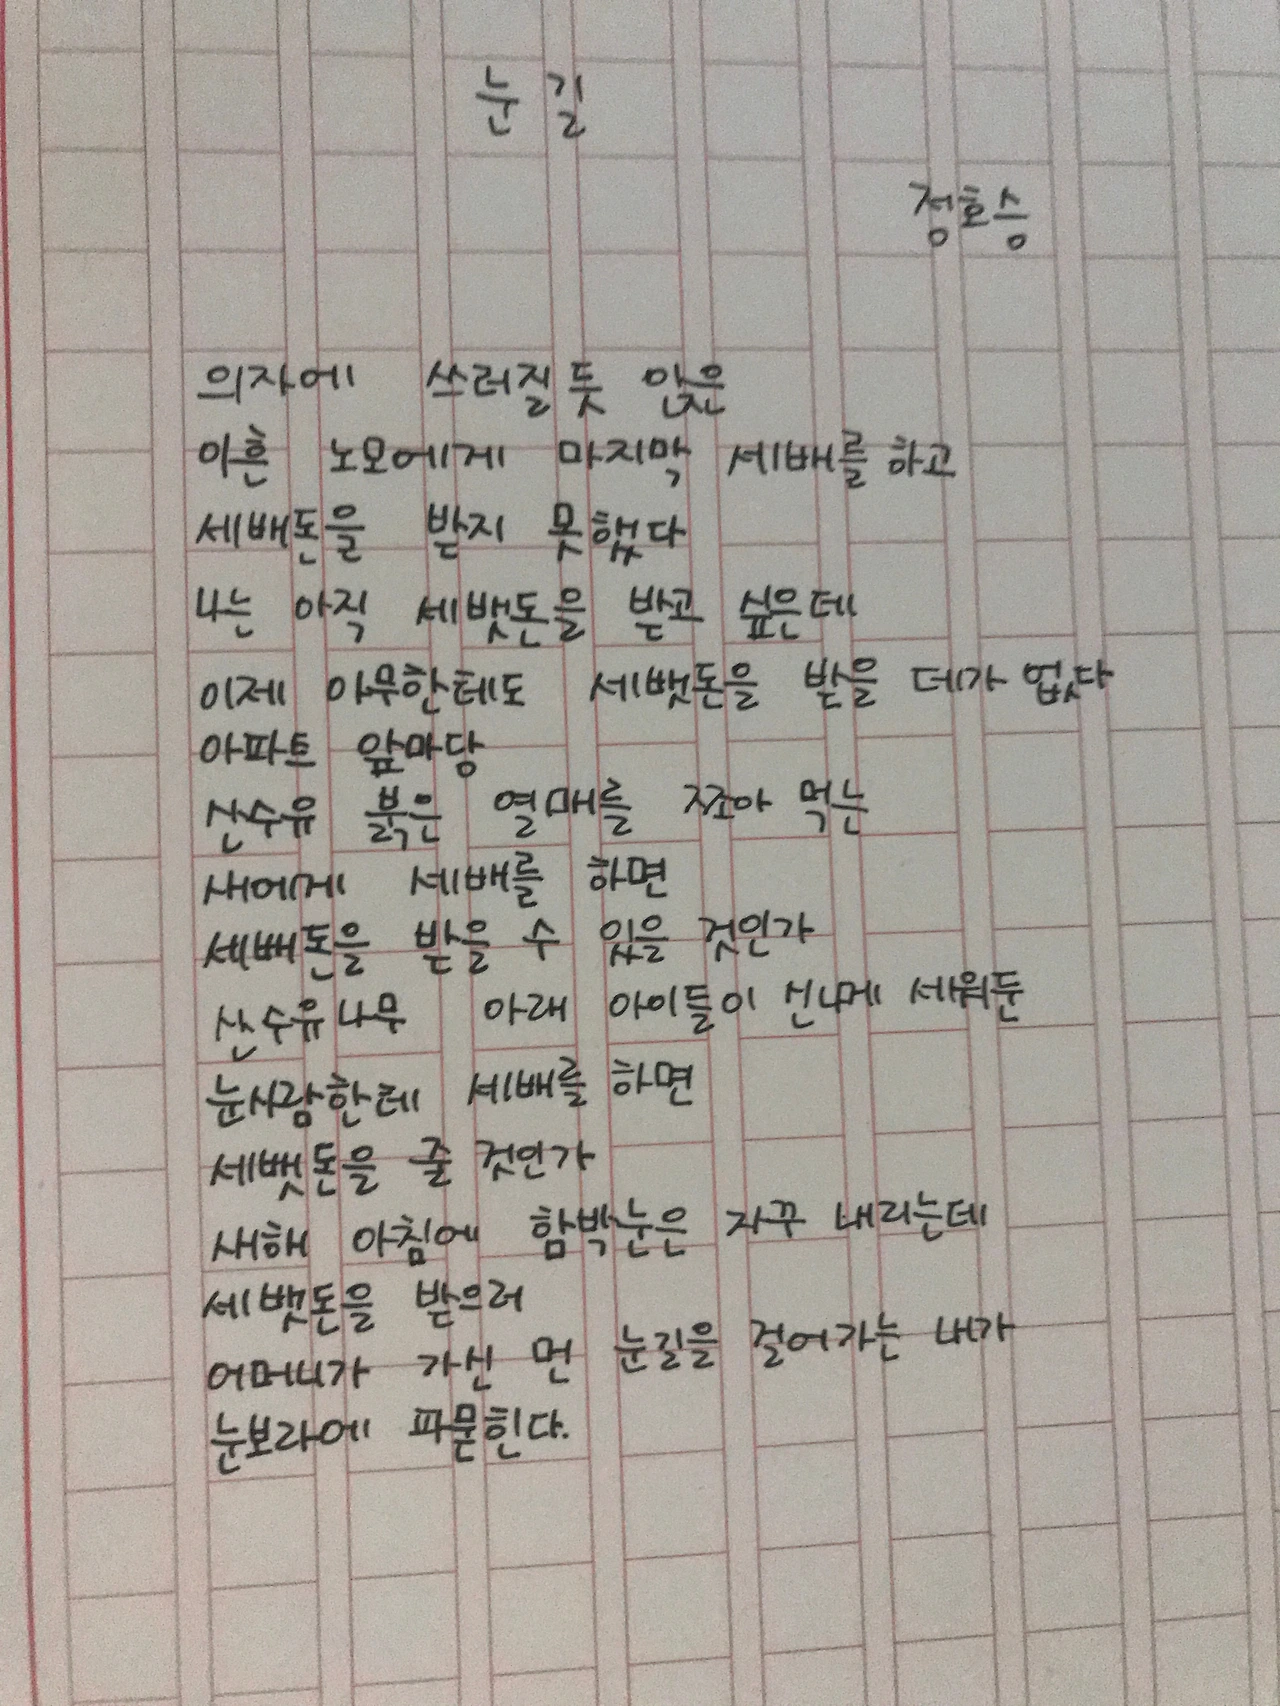 눈길
정호승
의자에 쓰러질듯 앉은
아흔 노모에게 마지막 세배를 하고
세배돈을 받지 못했다
나는 아직 세뱃돈을 받고 싶은데
이제 아무한테도 세뱃돈을 받을 데가 없다
아파트 앞마당
산수유 붉은 열매를 쪼아 먹는
새에게 세배를 하면
세뱃돈을 받을 수 있을 것인가
산수유나무 아래 아이들이 신나게 세워둔
눈사람한테 세배를 하면
세뱃돈을 줄 것인가
새해 아침에 함박눈은 자꾸 내리는데
세뱃돈을 받으러
어머니가 가신 먼 눈길을 걸어가는 내가
눈보라에 파묻힌다.